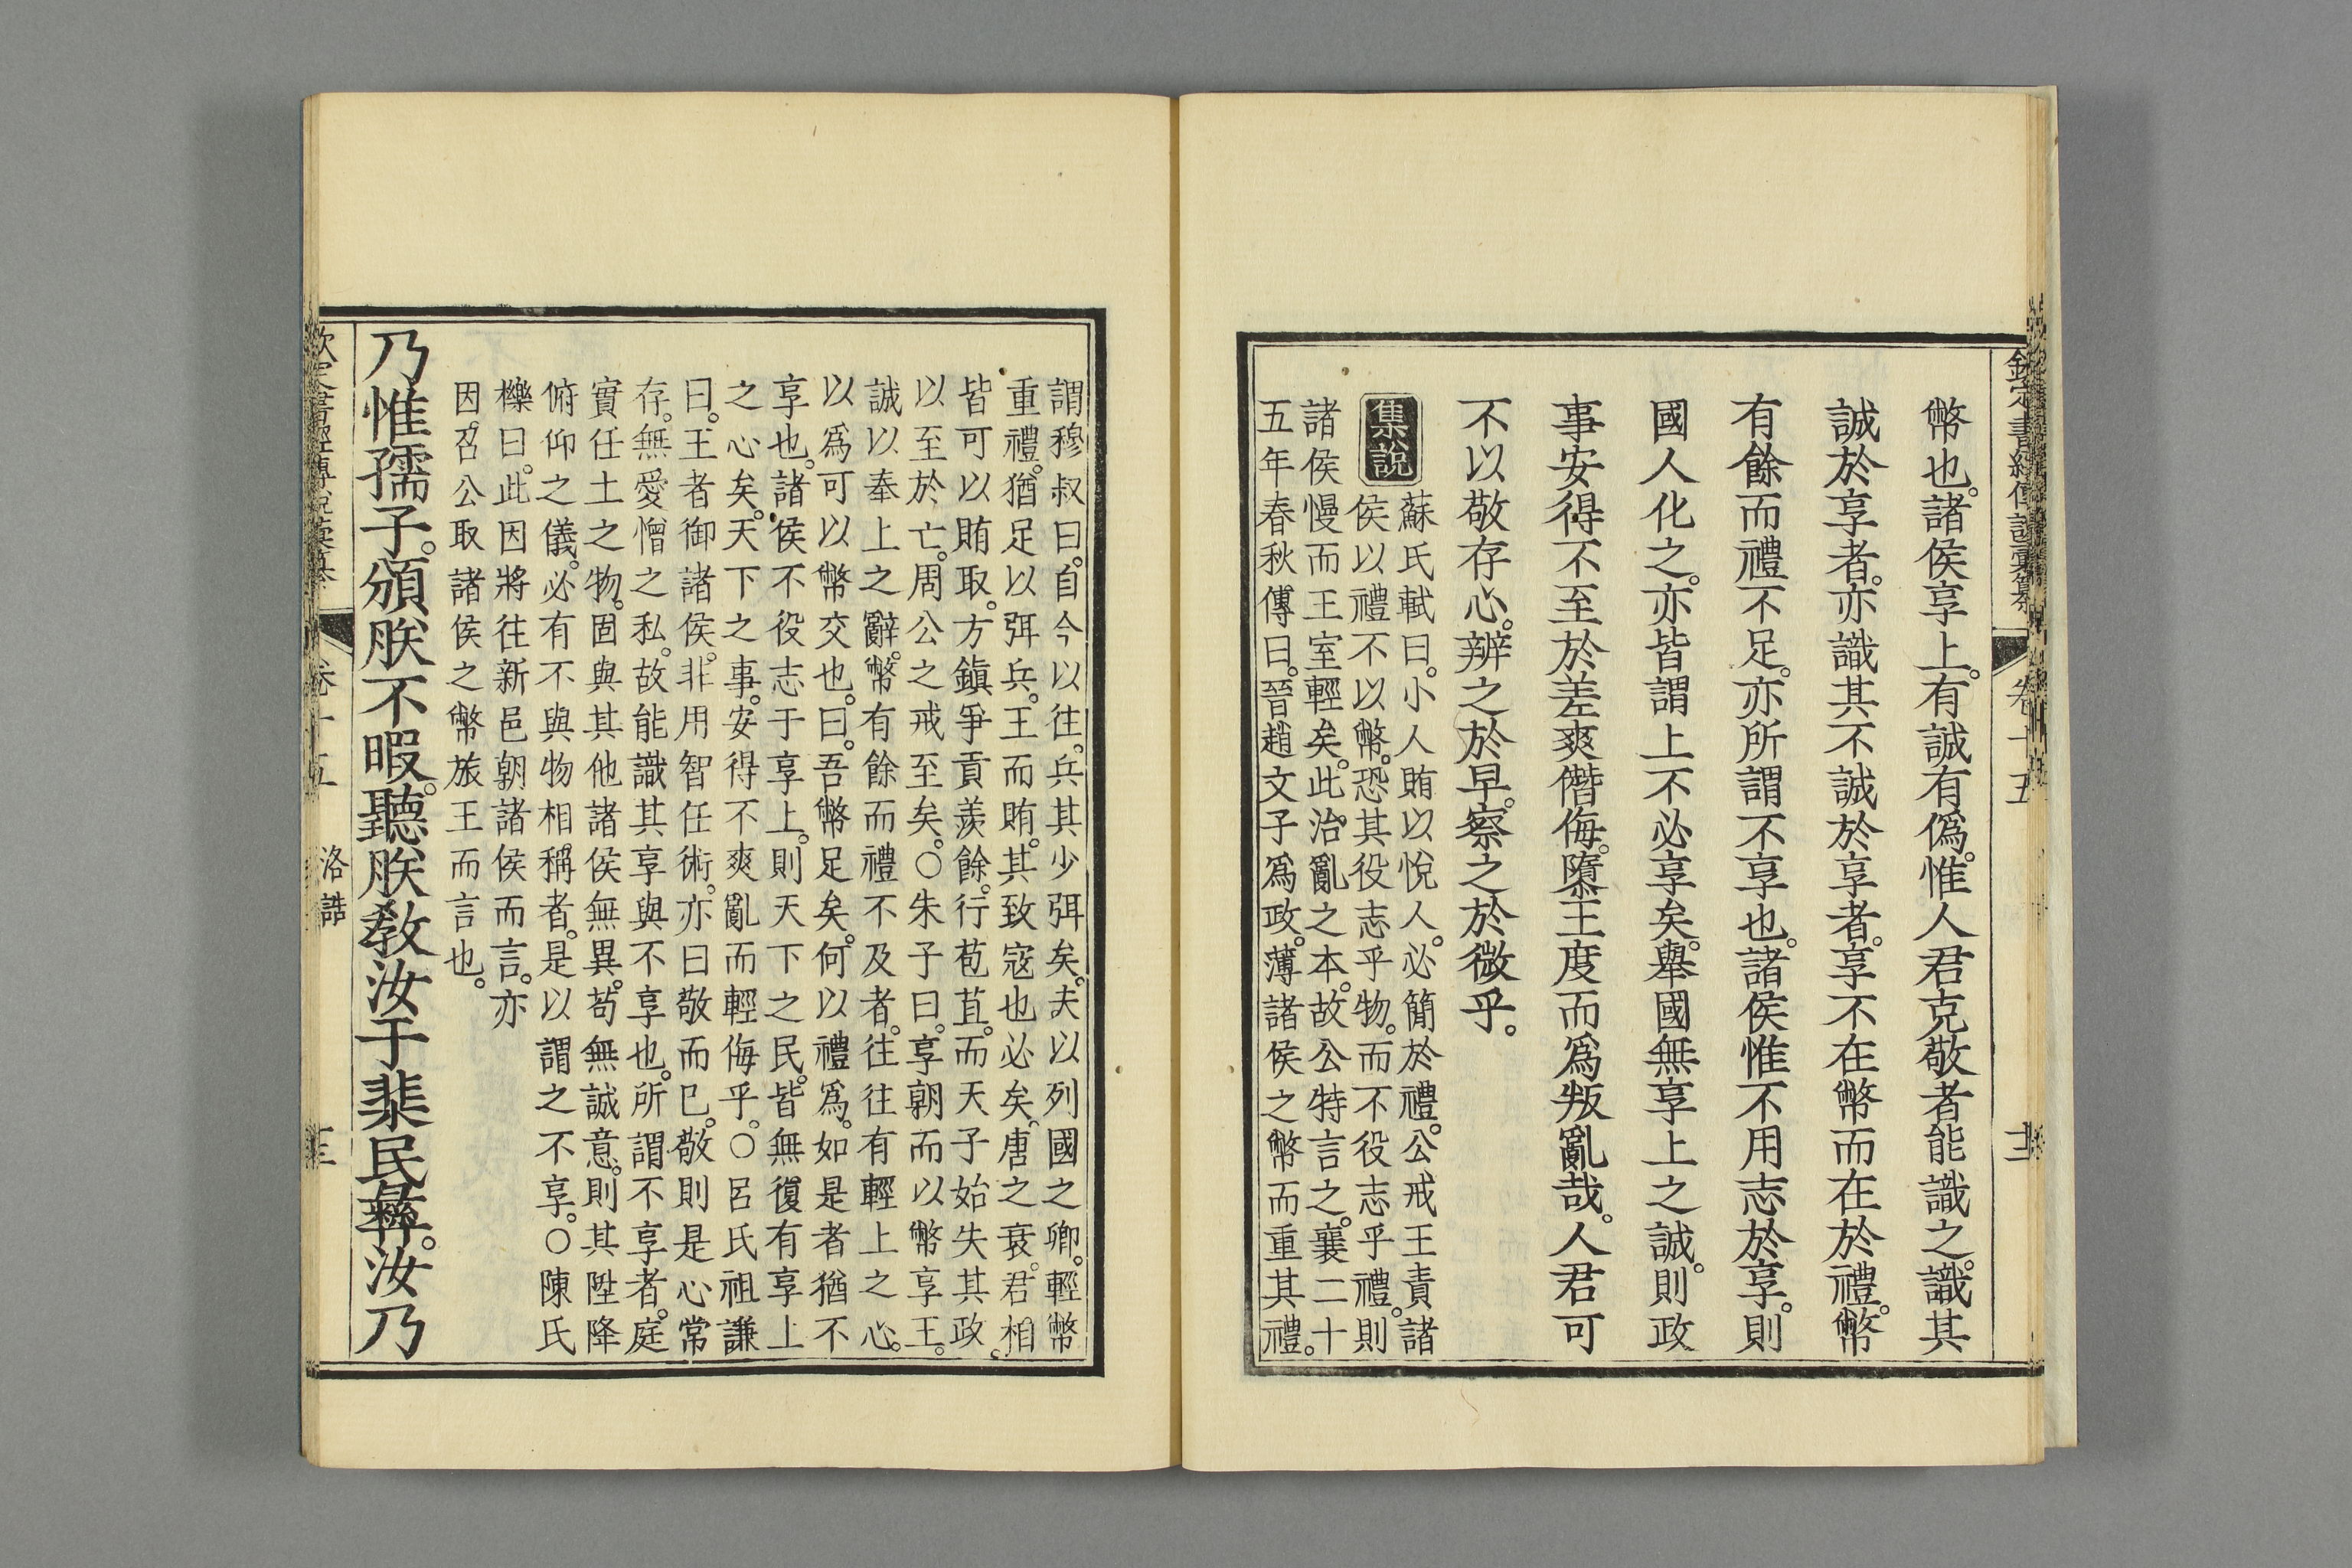 幣也。諸侯享上。有誠有僞。惟人君克敬者能識之。識其
誠於享者。亦識其不誠於享者。享不在幣而在於禮。幣
有餘而禮不足。亦所謂不享也。諸侯惟不用志於享。則
國人化之。亦皆謂上不必享矣。舉國無享上之誠。則政
事安得不至於差爽僭侮。隳王度而爲叛亂哉。人君可
不以敬存心。辨之於早。察之於微乎。
集說
蘇氏軾曰。小人賄以悅人。必簡於禮。公戒王責諸
侯以禮不以幣。恐其役志乎物。而不役志乎禮。則
諸侯慢而王室輕矣。此治亂之本。故公特言之。襄二十
五年春秋傳曰。晉趙文子爲政。薄諸侯之幣而重其禮。
謂穆叔曰。自今以往。兵其少弭矣。夫以列國之卿。輕幣
重禮。猶足以弭兵。王而賄。其致寇也必矣。唐之衰。君相
皆可以賄取。方鎭爭貢羨餘。行苞苴。而天子始失其政。
以至於亡。周公之戒至矣。○朱子曰。享朝而以幣享王。
誠以奉上之辭。幣有餘而禮不及者。往往有輕上之心。
以爲可以幣交也。曰。吾幣足矣。何以禮爲。如是者猶不
享也。諸侯不役志于享上。則天下之民。皆無復有享上
之心矣。天下之事。安得不爽亂而輕侮乎。○呂氏祖謙
曰。王者御諸侯。非用智任術。亦曰敬而已。敬則是心常
存。無愛憎之私。故能識其享與不享也。所謂不享者。庭
實任土之物。固與其他諸侯無異。苟無誠意。則其陞降
俯仰之儀。必有不與物相稱者。是以謂之不享。○陳氏
櫟曰。此因將往新邑朝諸侯而言。亦
因召公取諸侯之幣旅王而言也。
乃惟孺子。頒朕不暇。聽朕敎汝于棐民彝。汝乃
卷十五
洛誥